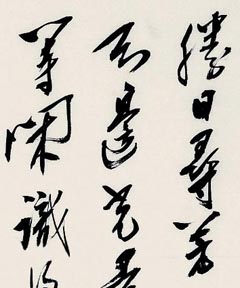 勝日尋芳
无邊光景
等閑識